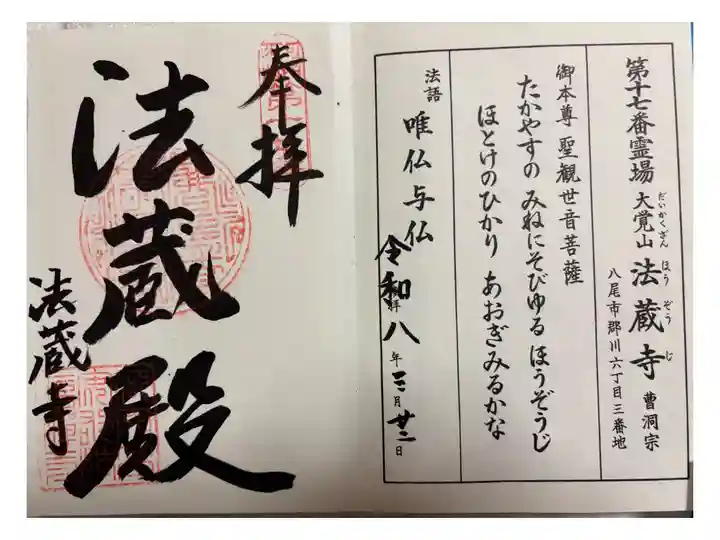 第十七番霊場 大覚山 法蔵寺 曹洞宗
だいかくざん
ほうぞうじ
八尾市郡川六丁目三番地
御本尊 聖観世音菩薩
たかやすの みねにそびゆる ほうぞうじ
ほとけのひかり あおぎみるかな
法語 唯仏与仏
令和八年三月廿二日
拝
奉拝
法蔵殿
法蔵寺